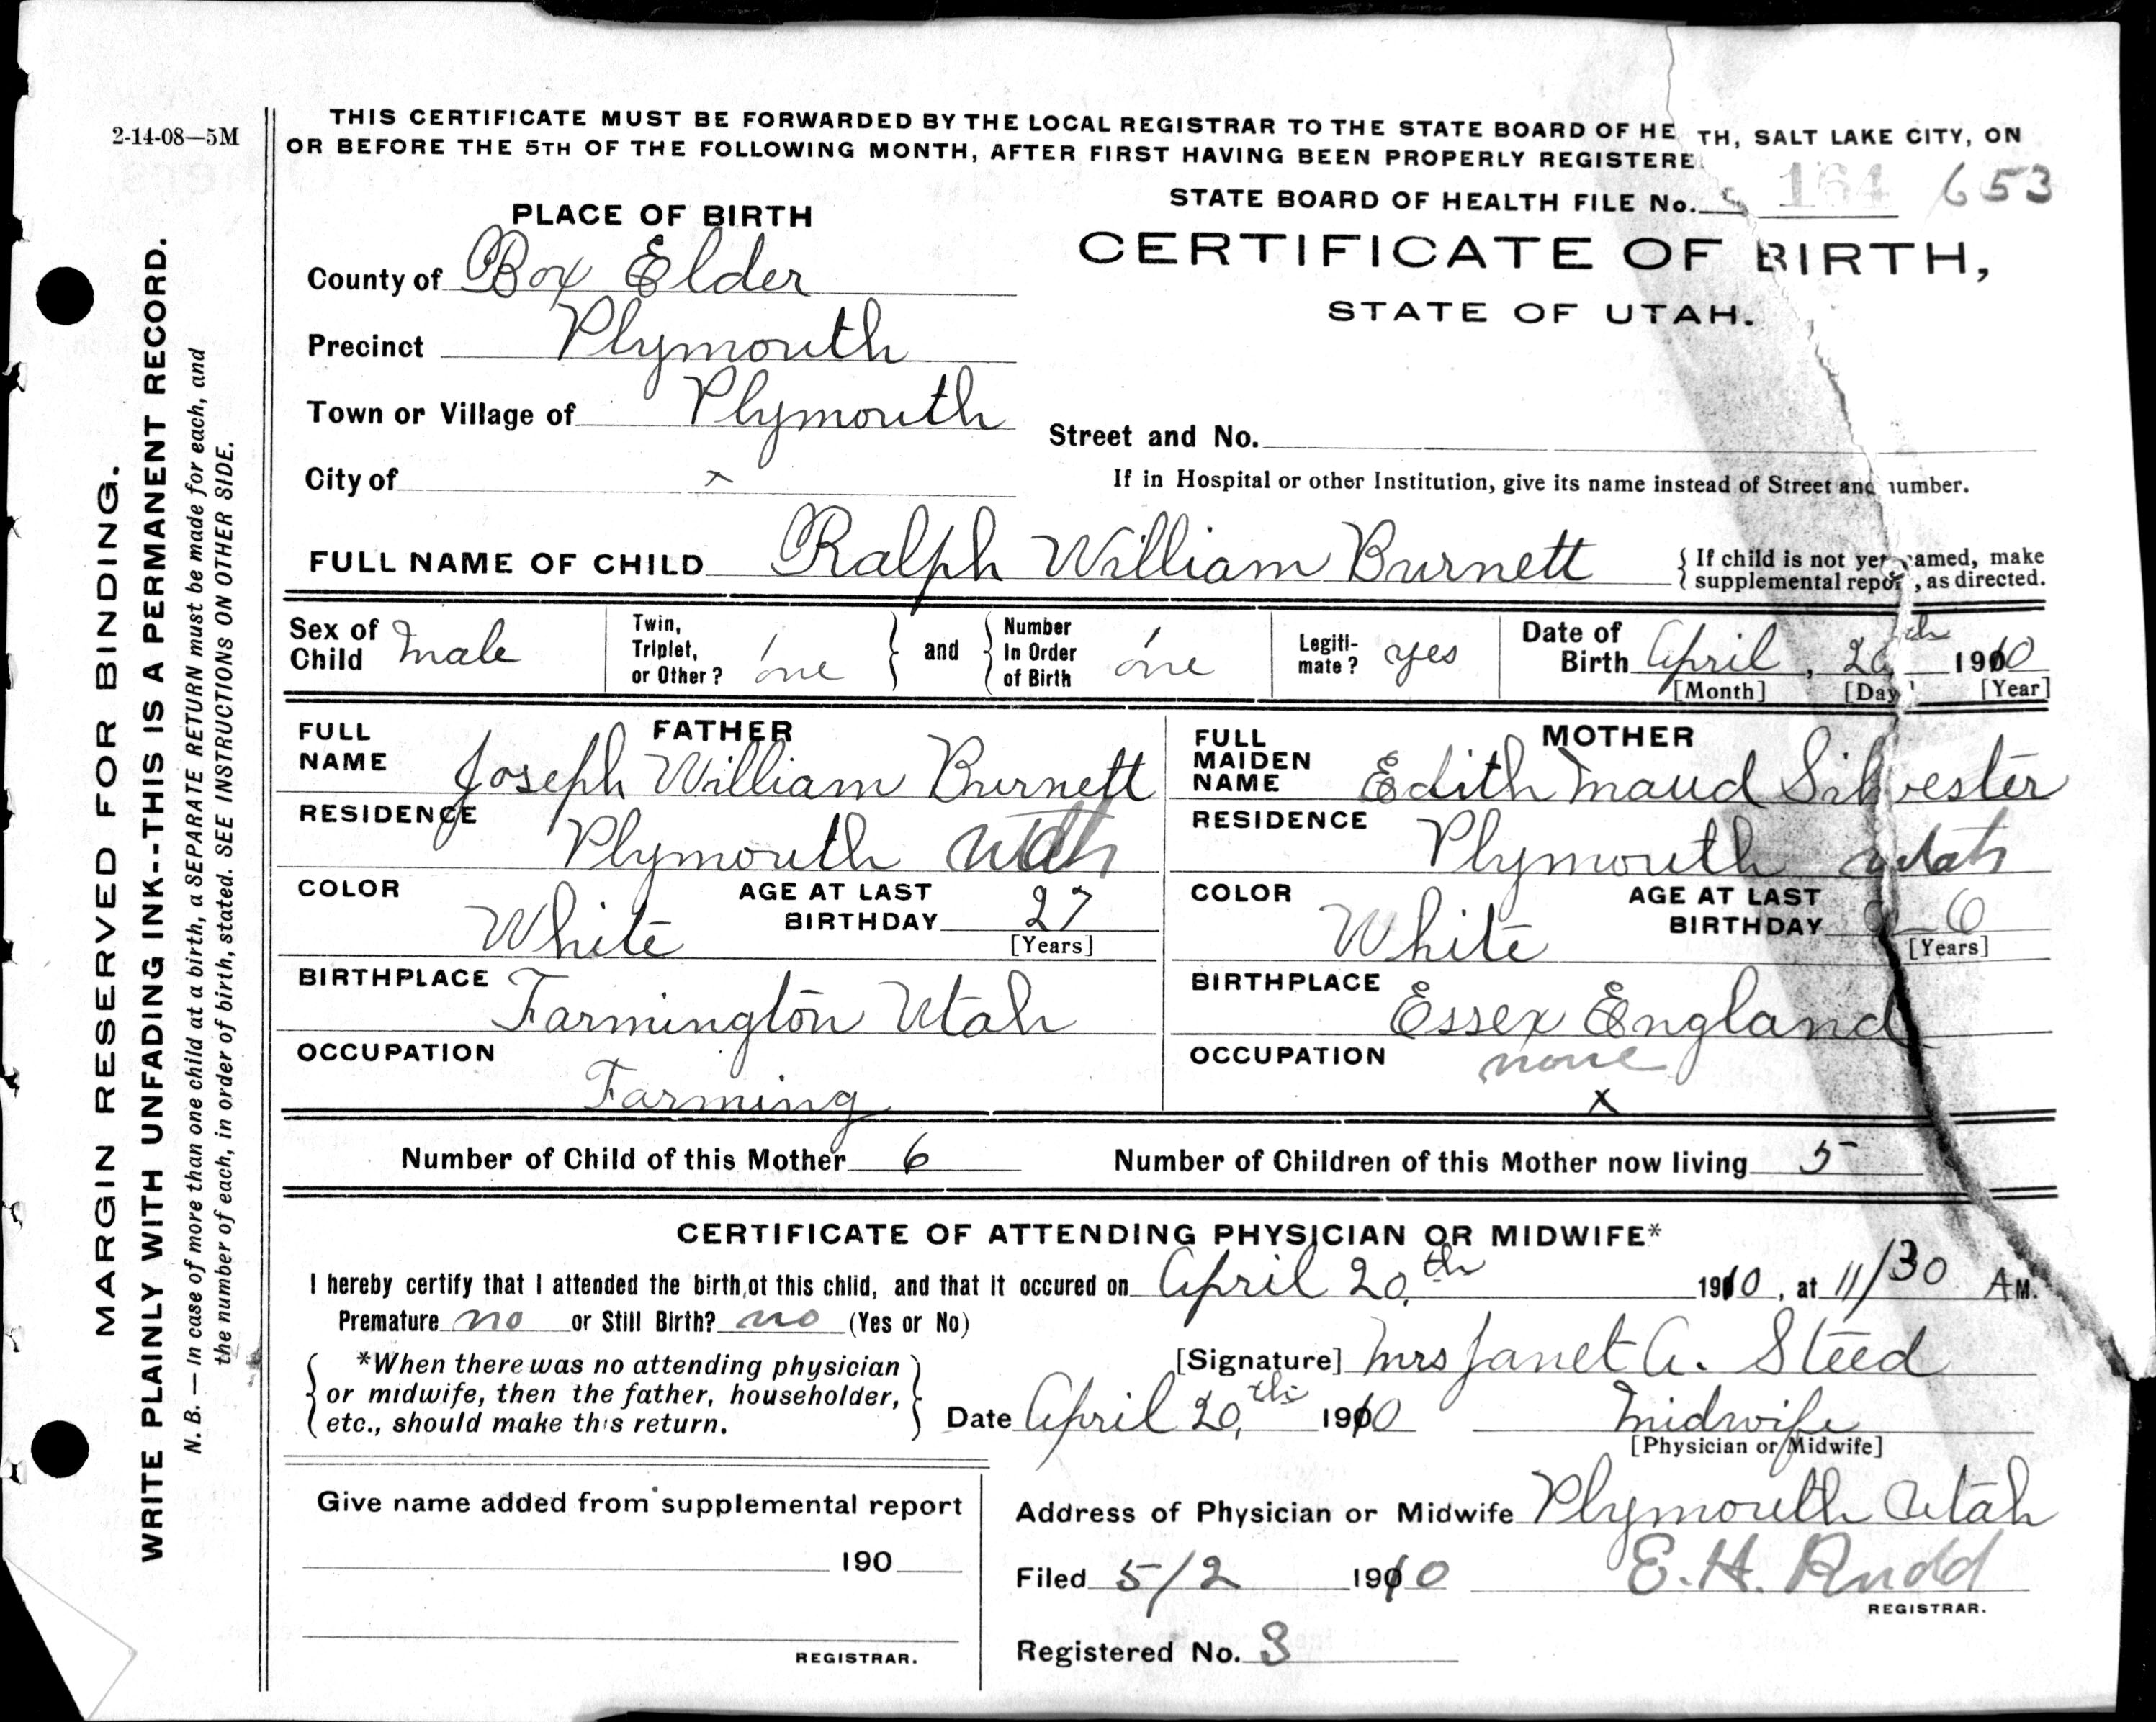 2-14-08—5M
THIS CERTIFICATE MUST BE FORWARDED BY THE LOCAL REGISTRAR TO THE STATE BOARD OF HE TH, SALT LAKE CITY, ON
OR BEFORE THE 5TH OF THE FOLLOWING MONTH, AFTER FIRST HAVING BEEN PROPERLY REGISTERE
STATE BOARD OF HEALTH FILE No. 164 653
CERTIFICATE OF BIRTH,
STATE OF UTAH.
PLACE OF BIRTH
County of Box Elder
Precinct Plymouth
Town or Village of Plymouth
Street and No.
City of x
If in Hospital or other Institution, give its name instead of Street and number.
FULL NAME OF CHILD Ralph William Burnett
{ If child is not yet named, make
supplemental report, as directed.
Sex of Child Male
Twin, Triplet, or Other? one } and { Number In Order of Birth one
Legiti-mate? yes
Date of Birth April, 20th 1910
[Month] [Day] [Year]
FATHER
FULL NAME Joseph William Burnett
RESIDENCE Plymouth Utah
COLOR White AGE AT LAST BIRTHDAY 27
[Years]
BIRTHPLACE Farmington Utah
OCCUPATION Farming
MOTHER
FULL MAIDEN NAME Edith Maud Silvester
RESIDENCE Plymouth Utah
COLOR White AGE AT LAST BIRTHDAY 6
[Years]
BIRTHPLACE Essex England
OCCUPATION none
x
Number of Child of this Mother 6 Number of Children of this Mother now living 5
CERTIFICATE OF ATTENDING PHYSICIAN OR MIDWIFE*
I hereby certify that I attended the birth of this child, and that it occured on April 20th 1910, at 11/30 AM.
Premature no or Still Birth? no (Yes or No)
{ *When there was no attending physician
or midwife, then the father, householder,
etc., should make this return. }
[Signature] Mrs Janet A. Steed
Date April 20th 1910 Midwife
[Physician or Midwife]
Give name added from supplemental report
190
REGISTRAR.
Address of Physician or Midwife Plymouth Utah
Filed 5/2 1910 E. H. Rudd
REGISTRAR.
Registered No. 3
MARGIN RESERVED FOR BINDING.
WRITE PLAINLY WITH UNFADING INK--THIS IS A PERMANENT RECORD.
N. B. — In case of more than one child at a birth, a SEPARATE RETURN must be made for each, and
the number of each, in order of birth, stated. SEE INSTRUCTIONS ON OTHER SIDE.